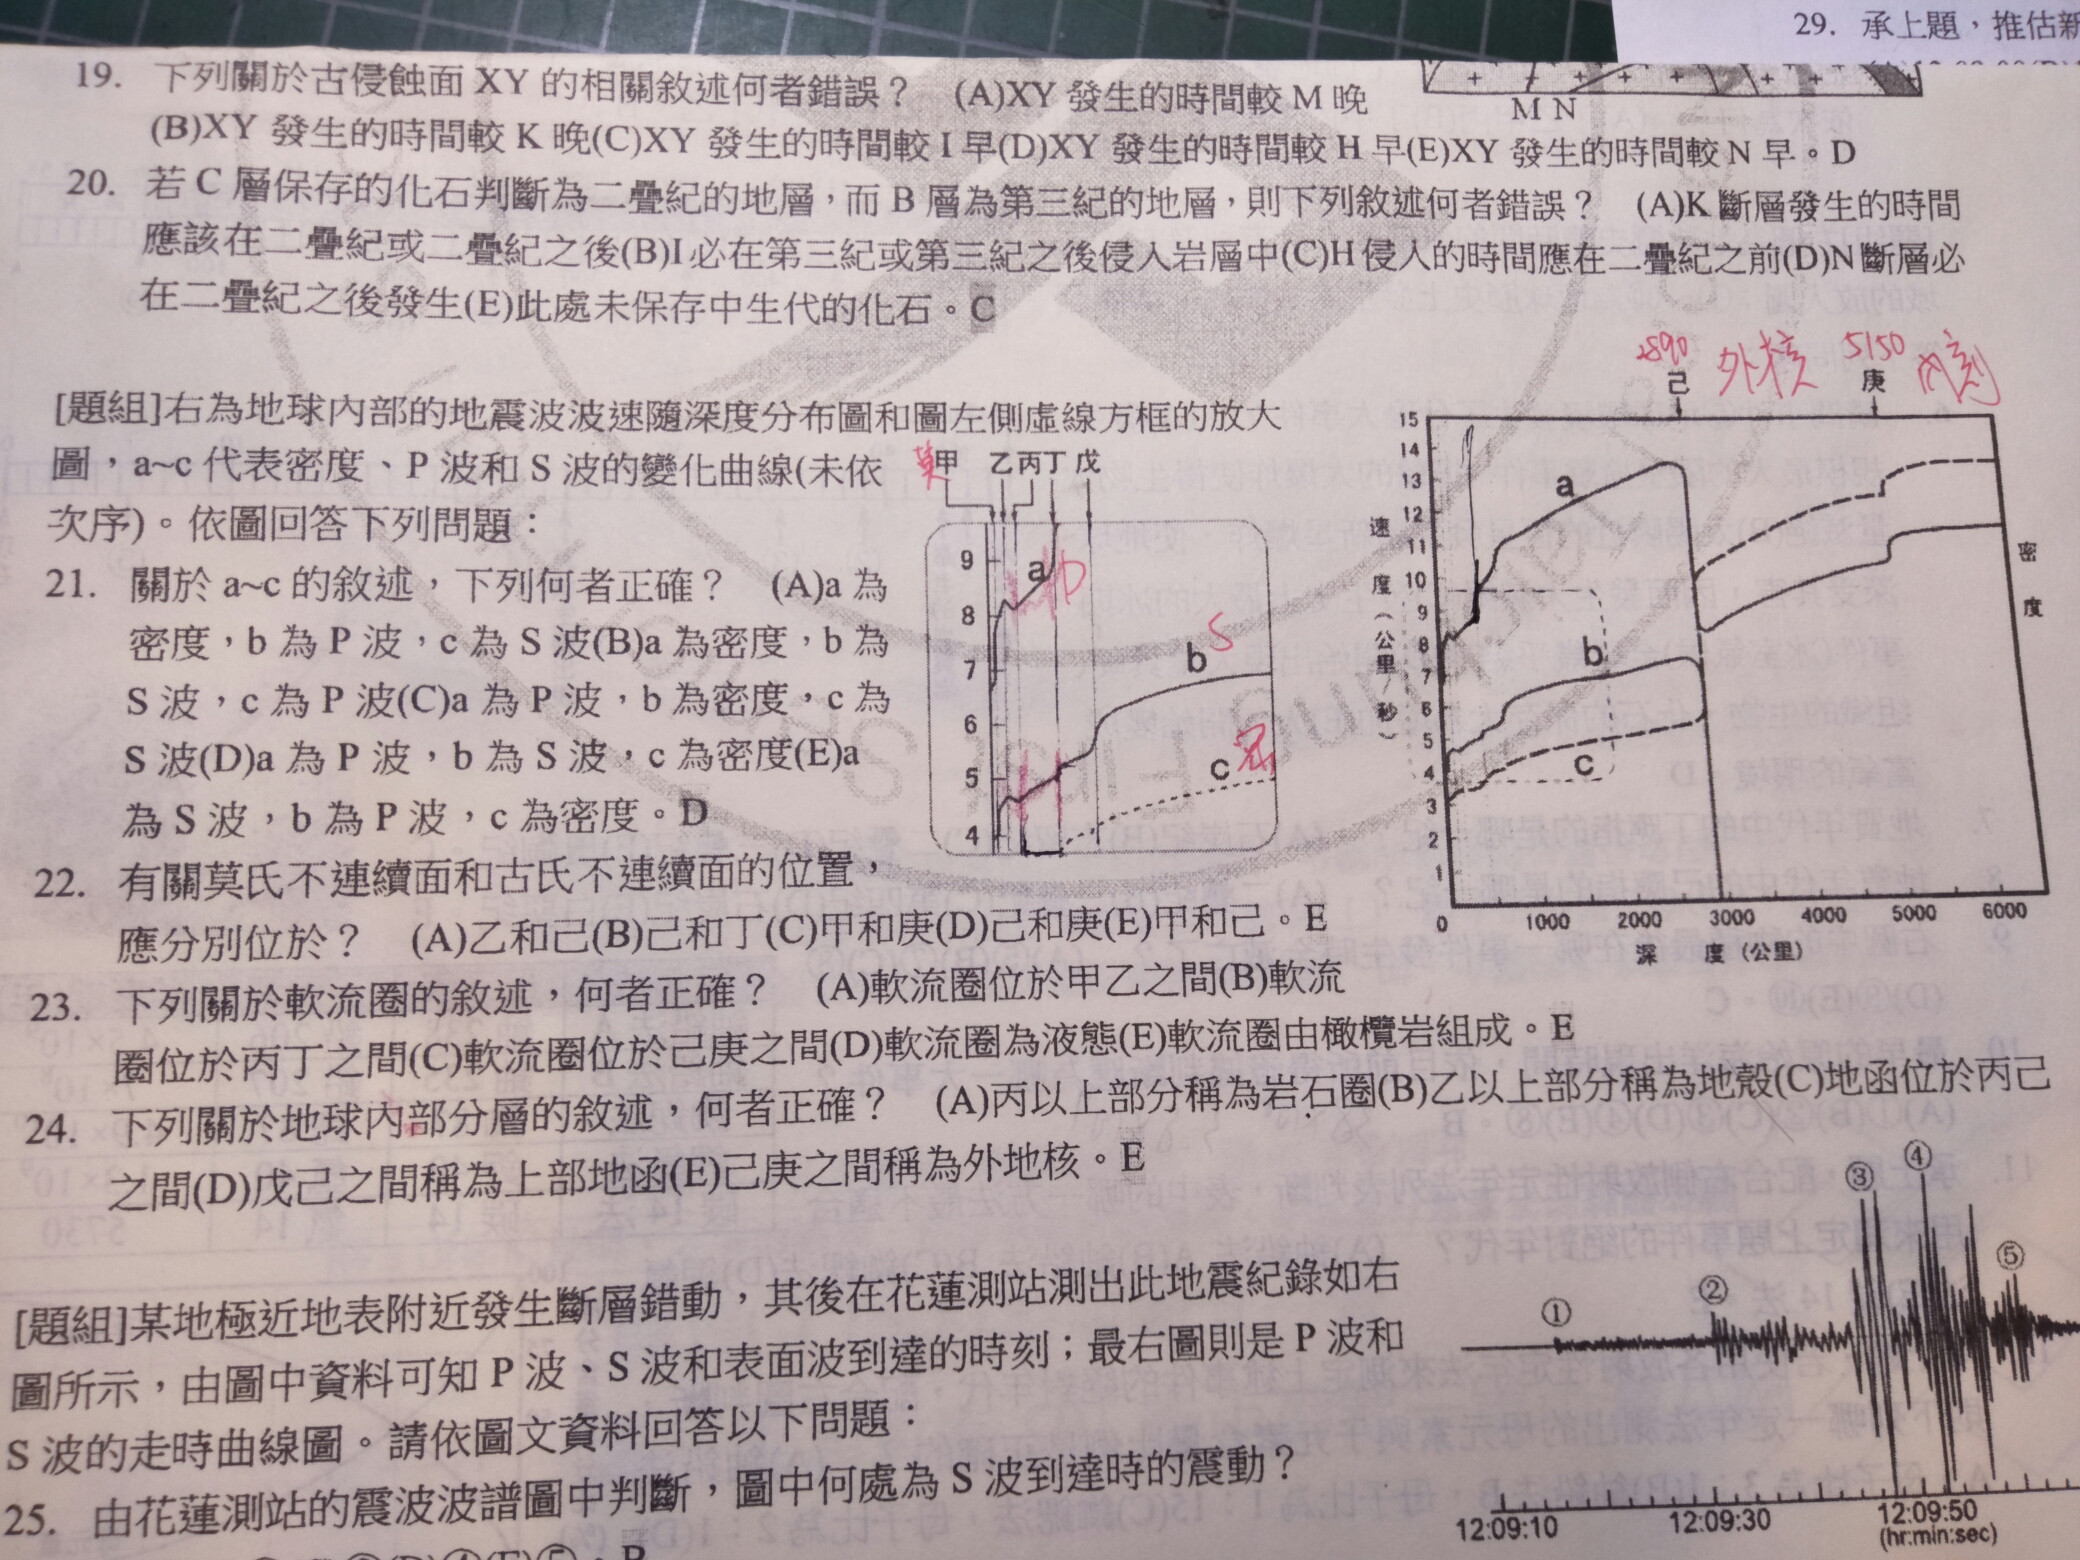 29. 承上題，推估新
19. 下列關於古侵蝕面 XY 的相關敘述何者錯誤？ (A)XY 發生的時間較 M 晚
M N
(B)XY 發生的時間較 K 晚(C)XY 發生的時間較 I 早(D)XY 發生的時間較 H 早(E)XY 發生的時間較 N 早。D
20. 若 C 層保存的化石判斷為二疊紀的地層，而 B 層為第三紀的地層，則下列敘述何者錯誤？ (A)K 斷層發生的時間
應該在二疊紀或二疊紀之後(B)I 必在第三紀或第三紀之後侵入岩層中(C)H 侵入的時間應在二疊紀之前(D)N 斷層必
在二疊紀之後發生(E)此處未保存中生代的化石。C
2890 外核 5150 內
己 庚
[題組]右為地球內部的地震波波速隨深度分布圖和圖左側虛線方框的放大
圖，a~c 代表密度、P 波和 S 波的變化曲線(未依
次序)。依圖回答下列問題：
莫 甲 乙 丙 丁 戊
9
8
7
6
5
4
a
b S
c
15
14
13
12
11
10
9
8
7
6
5
4
3
2
1
速度(公里/秒)
a
b
c
密度
0 1000 2000 3000 4000 5000 6000
深 度 (公里)
21. 關於 a~c 的敘述，下列何者正確？ (A)a 為
密度，b 為 P 波，c 為 S 波(B)a 為密度，b 為
S 波，c 為 P 波(C)a 為 P 波，b 為密度，c 為
S 波(D)a 為 P 波，b 為 S 波，c 為密度(E)a
為 S 波，b 為 P 波，c 為密度。D
22. 有關莫氏不連續面和古氏不連續面的位置，
應分別位於？ (A)乙和己(B)己和丁(C)甲和庚(D)己和庚(E)甲和己。E
23. 下列關於軟流圈的敘述，何者正確？ (A)軟流圈位於甲乙之間(B)軟流
圈位於丙丁之間(C)軟流圈位於己庚之間(D)軟流圈為液態(E)軟流圈由橄欖岩組成。E
24. 下列關於地球內部分層的敘述，何者正確？ (A)丙以上部分稱為岩石圈(B)乙以上部分稱為地殼(C)地函位於丙己
之間(D)戊己之間稱為上部地函(E)己庚之間稱為外地核。E
[題組]某地極近地表附近發生斷層錯動，其後在花蓮測站測出此地震紀錄如右
圖所示，由圖中資料可知 P 波、S 波和表面波到達的時刻；最右圖則是 P 波和
S 波的走時曲線圖。請依圖文資料回答以下問題：
① ② ③ ④ ⑤
12:09:10 12:09:30 12:09:50
(hr:min:sec)
25. 由花蓮測站的震波波譜圖中判斷，圖中何處為 S 波到達時的震動？